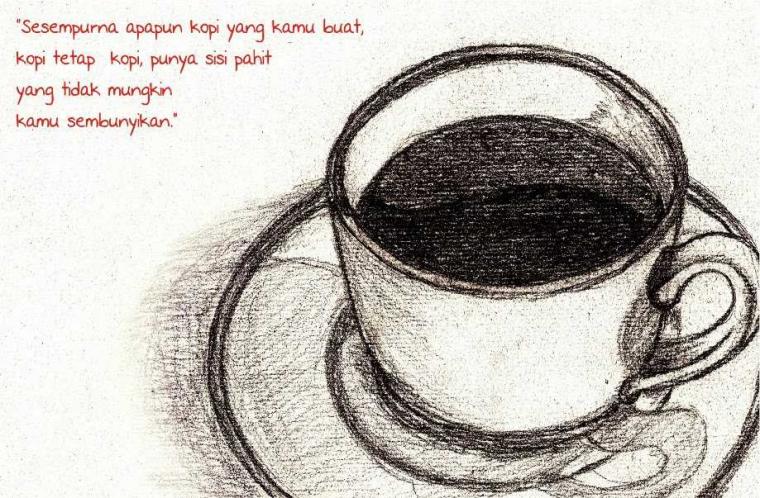 "Sesempurna apapun kopi yang kamu buat,
kopi tetap kopi, punya sisi pahit
yang tidak mungkin
kamu sembunyikan."